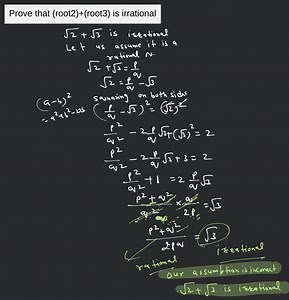 Prove that (root2)+(root3) is irrational
√2 + √3 is irrational
Let us assume it is a
rational no
√2 + √3 = p/q
√2 = p/q - √3
squaring on both sides
(a-b)²
= a²+b²-2ab
(p/q - √3)² = (√2)²
p²/q² - 2 p/q √3 + (√3)² = 2
p²/q² - 2 p/q √3 + 3 = 2
p²/q² + 1 = 2 p/q √3
p² + q²/q² × q/2p = √3
p² + q²/2pq = √3
rational irrational
Our assumption is incorrect
√2 + √3 is irrational